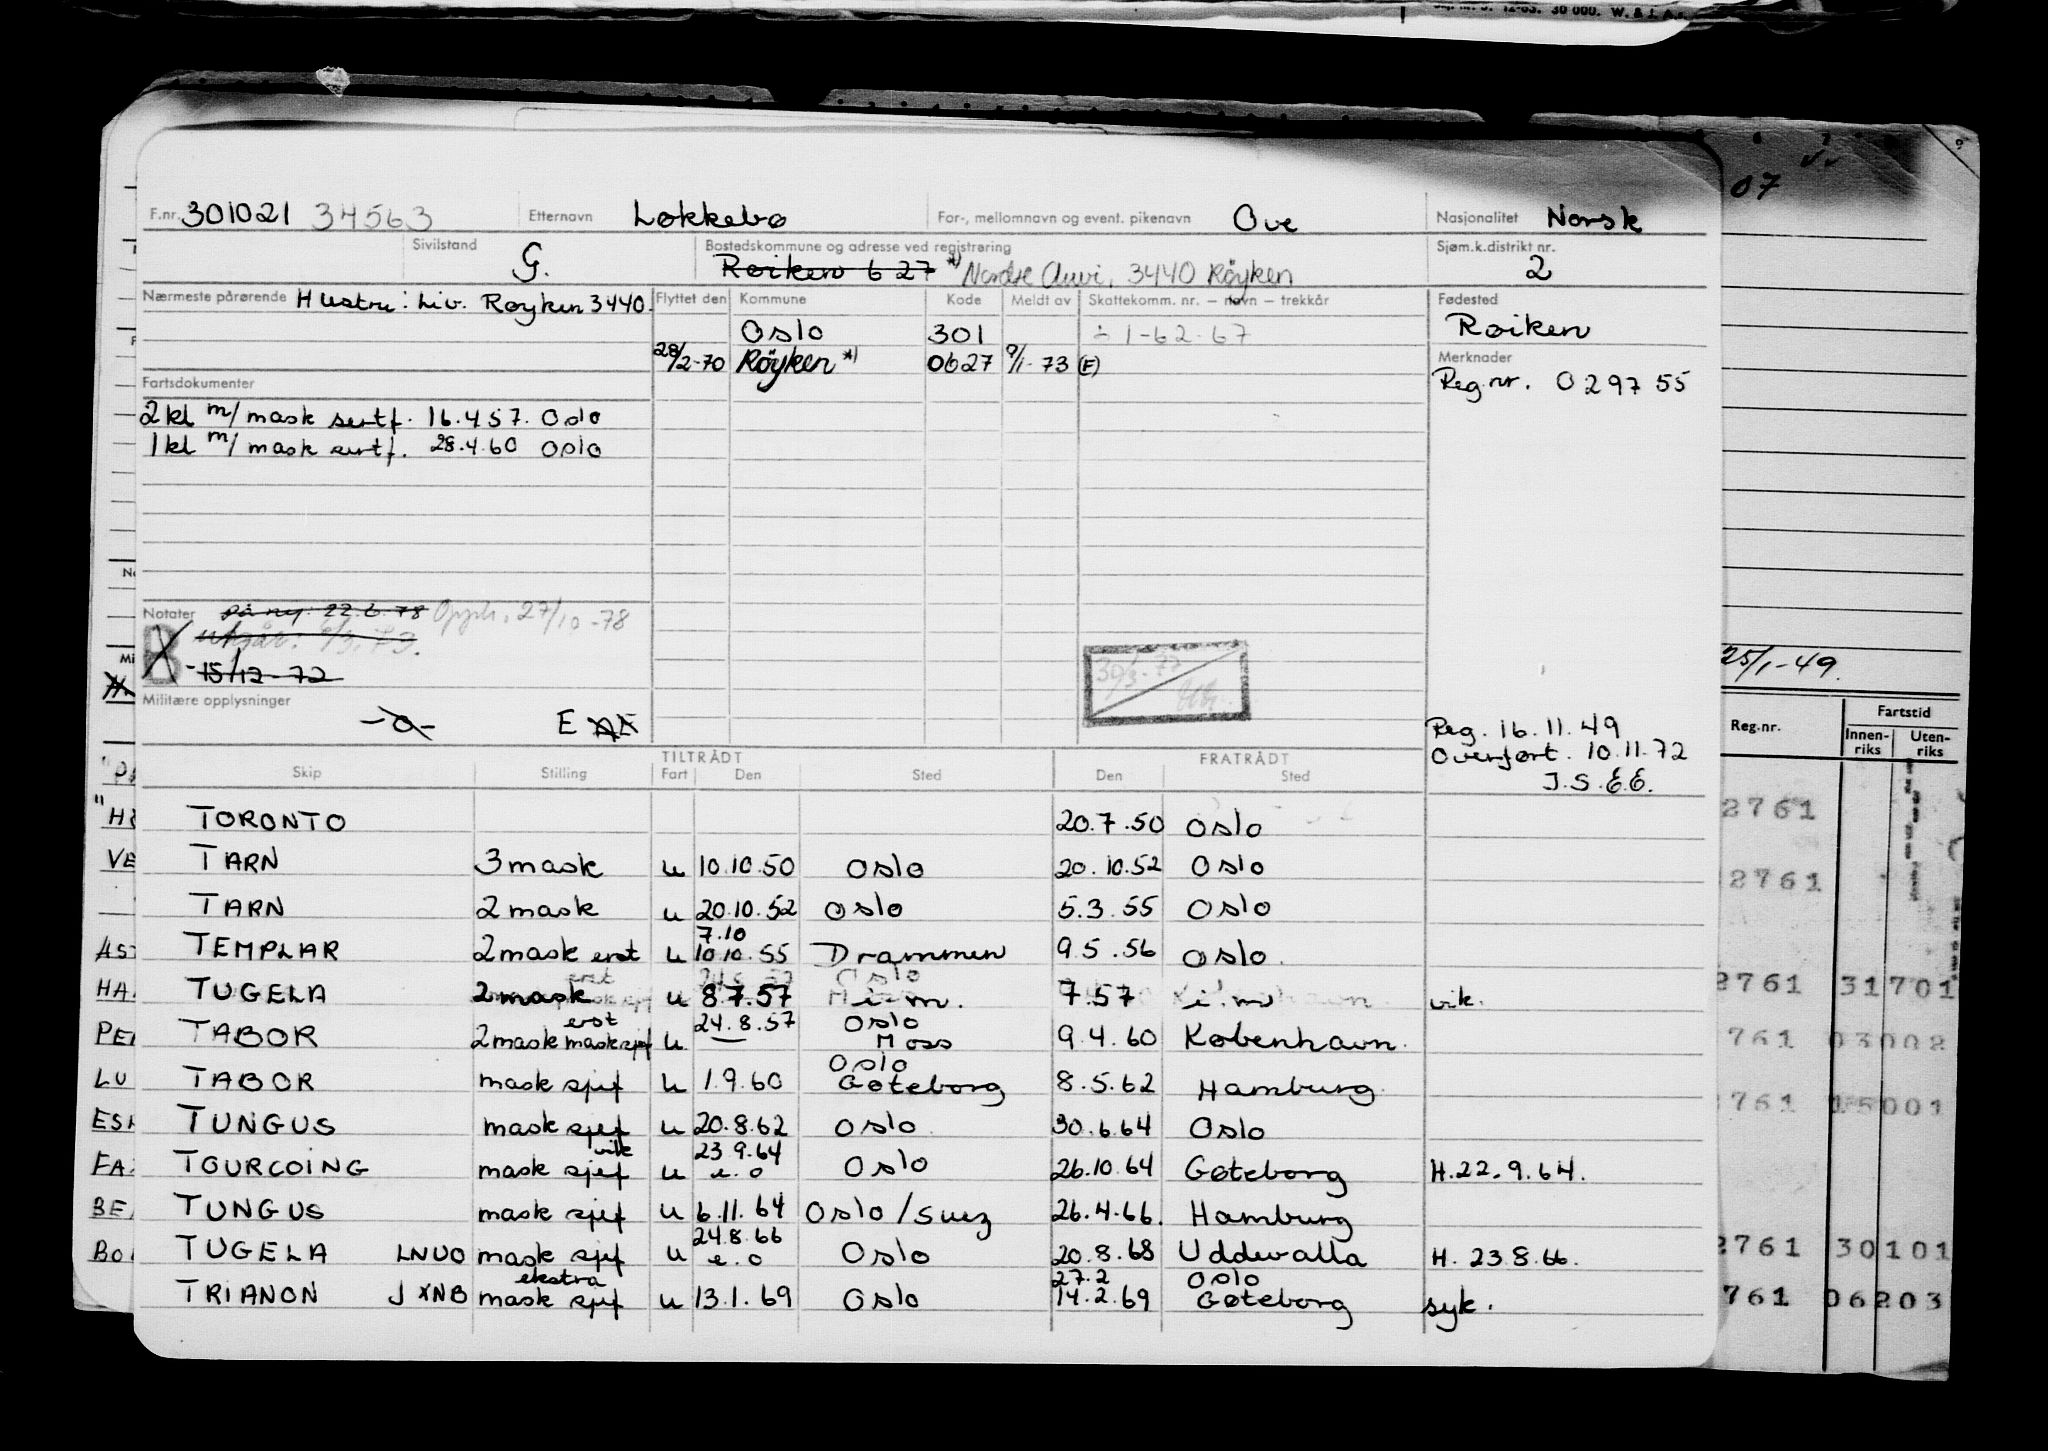 12-63. 30 000. W. & J. A.s.
07
F.nr. 301021 34563 Etternavn Løkkebø For-, mellomnavn og event. pikenavn Ove Nasjonalitet Norsk
Sivilstand G. Bostedskommune og adresse ved registrering Røiken 627 *) Nordre Auvi, 3440 Røyken Sjøm.k.distrikt nr. 2
Nærmeste pårørende Hustru: Liv. Røyken 3440. Flyttet den Kommune Kode Meldt av Skattekomm. nr. – navn – trekkår Fødested
Oslo 301 ÷ 1-62-67 Røiken
28/2-70 Røyken *) 0627 9/1-73 (F) Merknader
Fartsdokumenter Reg.nr. 029755
2 kl m/ mask sertf. 16.4 57. Oslo
1 kl m/ mask sertf. 28.4.60 Oslo
Notater på ny: 22.6.78 Opph. 27/10-78
B utgår: 73.
-15/12-72
30/3-77
25/1-49.
Militære opplysninger -0- E
Reg. 16.11.49
Overført. 10.11.72
J.S.E.E.
Reg.nr. Fartstid
Innen-riks Uten-riks
TILTRÅDT FRATRÅDT
Skip Stilling Fart Den Sted Den Sted
TORONTO 20.7.50 Oslo
2761
TARN 3 mask u 10.10.50 Oslo 20.10.52 Oslo
2761
TARN 2 mask u 20.10.52 Oslo 5.3.55 Oslo
7.10
TEMPLAR 2 mask erst u 10.10.55 Drammen 9.5.56 Oslo.
TUGELA 2 mask u 8.7.57 i.m. 7.57 i.m vik.
2761 31701
erst 24.8.57 Oslo
TABOR 2 mask masksjef u — Moss 9.4.60 København.
761 03002
Oslo
TABOR mask sjef u 1.9.60 Gøteborg 8.5.62 Hamburg.
761 15001
TUNGUS mask sjef u 20.8.62 Oslo 30.6.64 Oslo
vik 23.9.64
TOURCOING mask sjef u e.o Oslo 26.10.64 Gøteborg H.22.9.64.
TUNGUS mask sjef u 6.11.64 Oslo/Suez 26.4.66. Hamburg
24.8.66
TUGELA LNUO mask sjef u e.o Oslo 20.8.68 Uddevalla H. 23.8.66.
2761 30101
ekstra 27.2 Oslo
TRIANON JXNB mask sjef u 13.1.69 Oslo 14.2.69 Gøteborg syk.
761 06203
VE
AST
HA
PE
LU
ES
FA
BE
BO